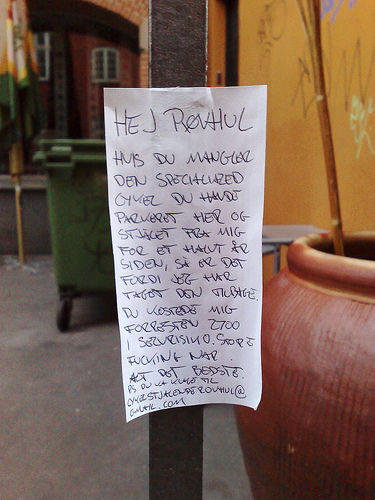 HEJ RØVHUL
HVIS DU MANGLER
DEN SPECIALIZED
CYKEL DU HAVDE
PARKERET HER OG
STJÅLET FRA MIG
FOR ET HALVT ÅR
SIDEN, SÅ ER DET
FORDI JEG HAR
TAGET DEN TILBAGE.
DU KOSTEDE MIG
FORRESTEN 2700
I SELVRISIKO. STORE
FUCKING NAR.
ALT DET BEDSTE
PS DU KA KLAGE TIL
CYKELSTJÆLENDERØVHUL@
GMAIL.COM